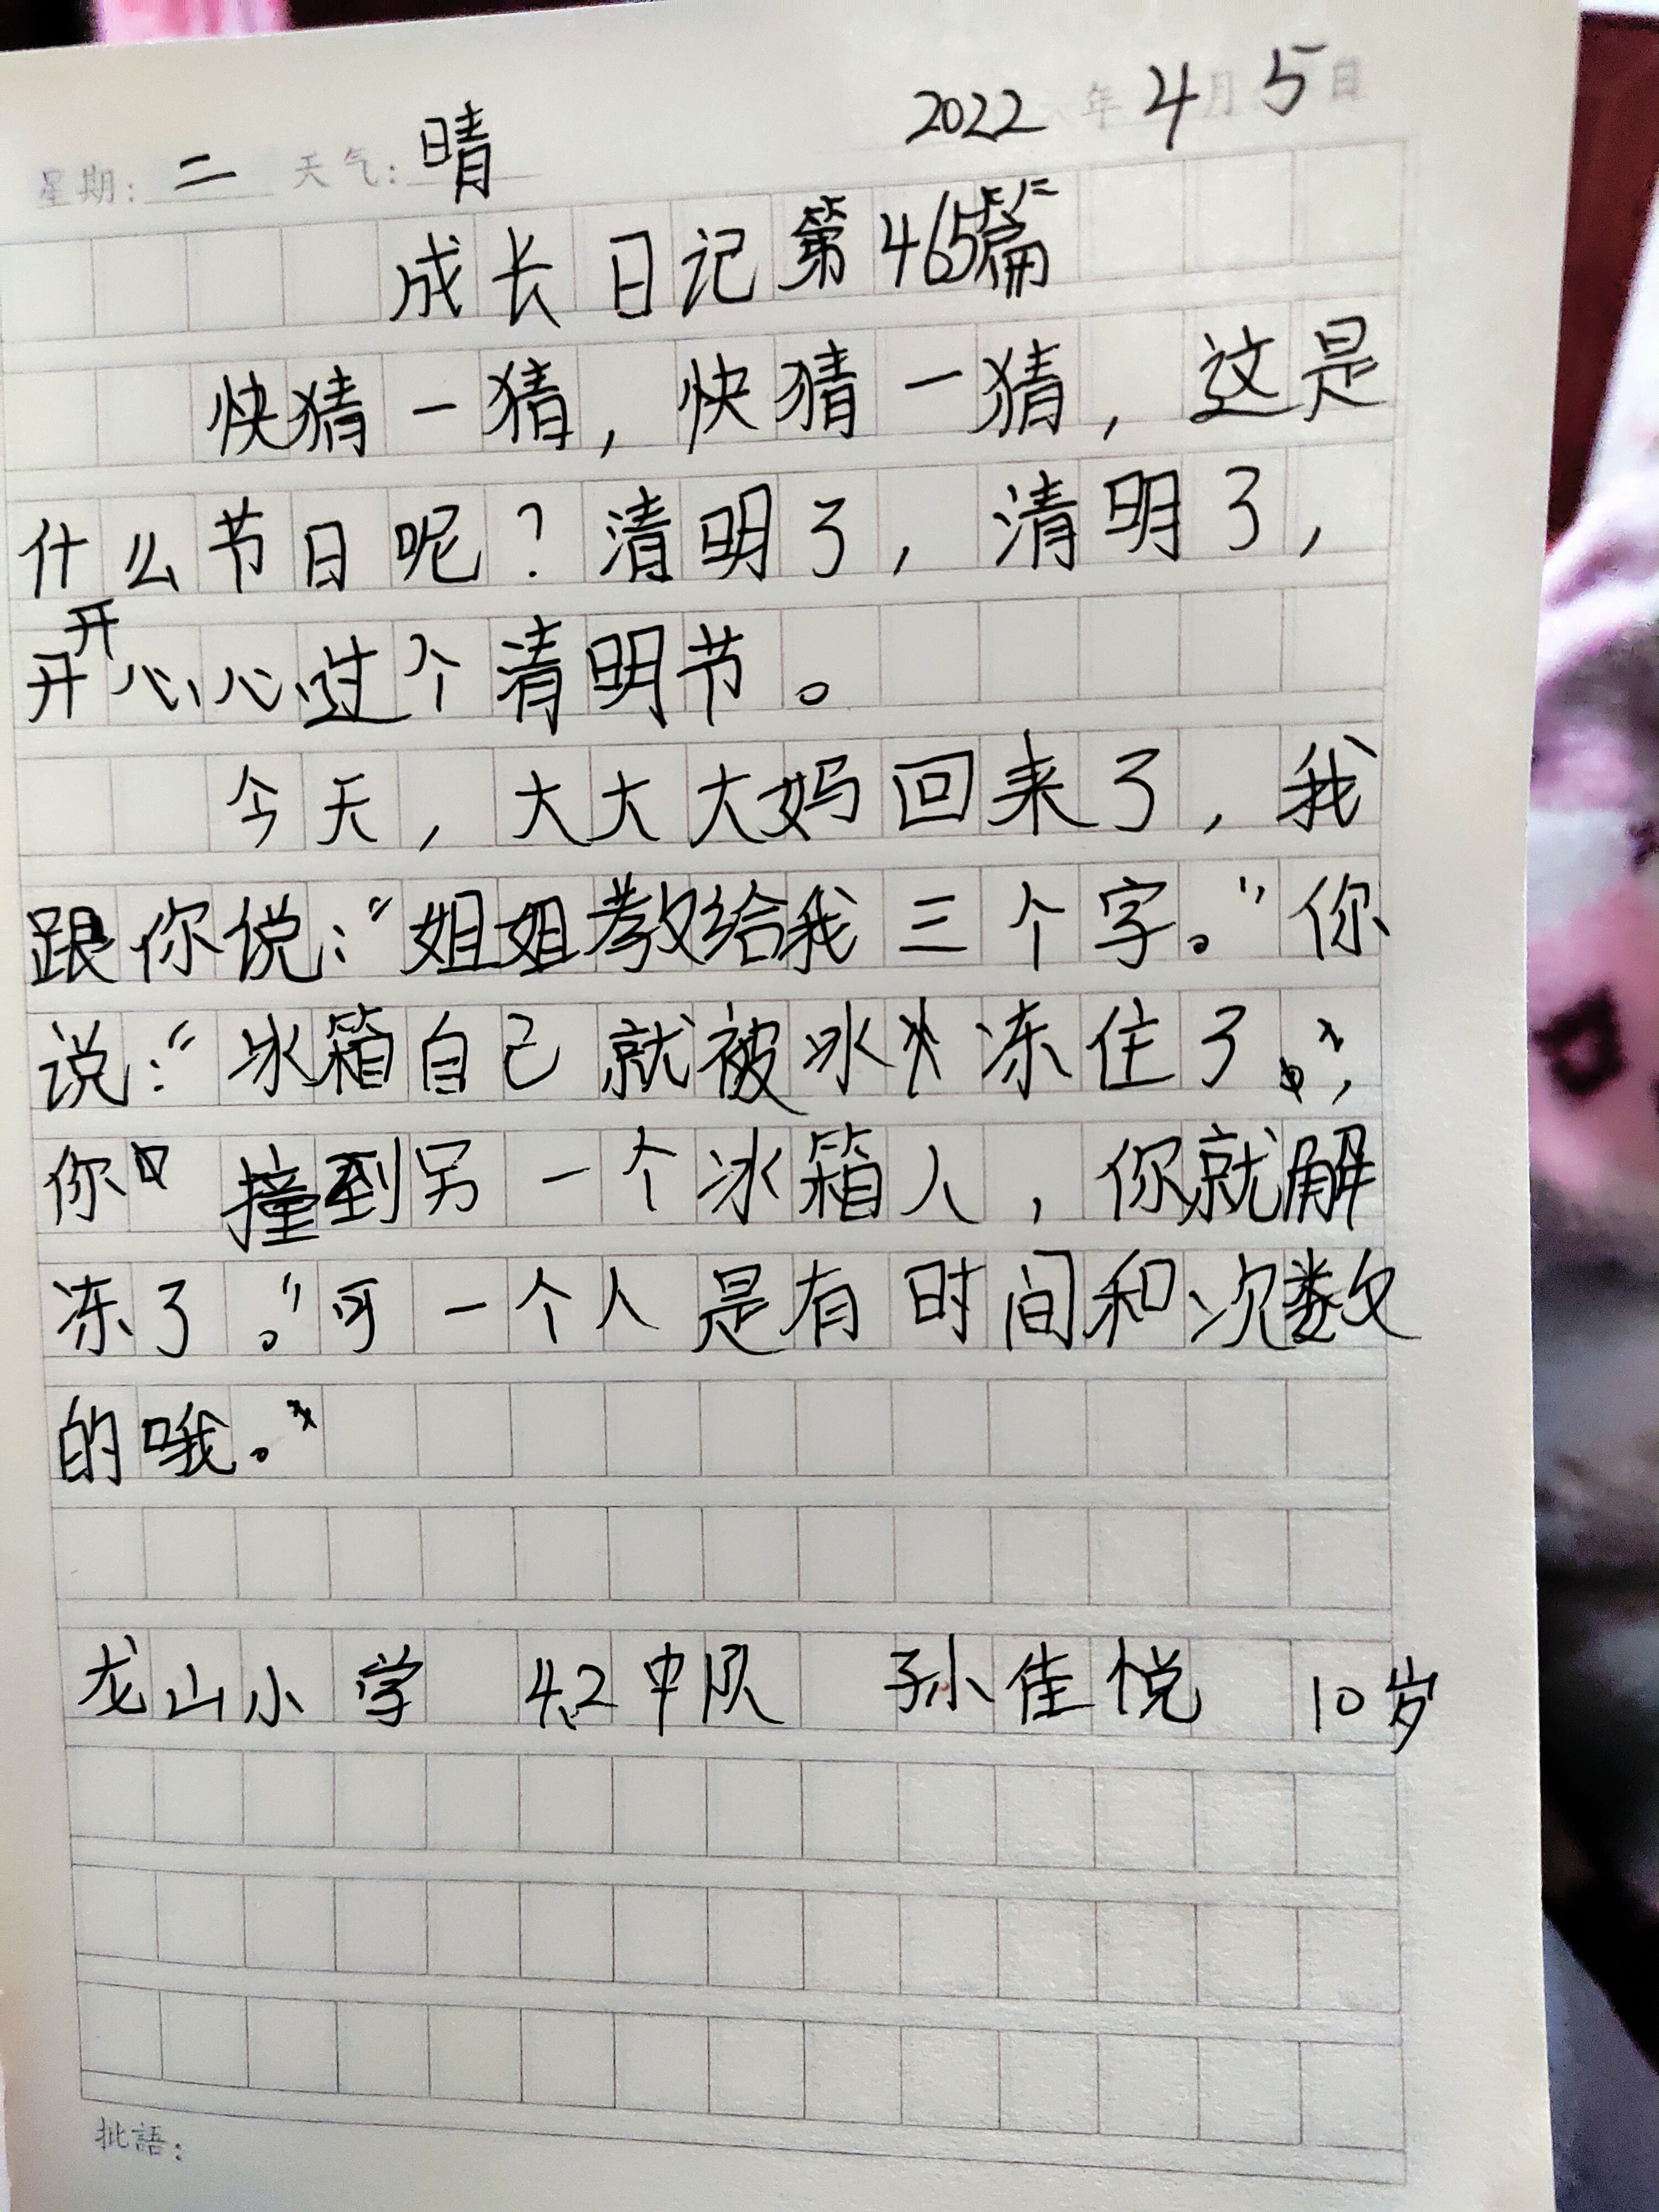 2022年4月5日
星期：二 天气：晴
成长日记第465篇
快猜一猜，快猜一猜，这是
什么节日呢？清明了，清明了，
开开心心过个清明节。
今天，大大大妈回来了，我
跟你说：“姐姐教给我三个字。”你
说：“冰箱自己就被冰冻住了。，
你 撞到另一个冰箱人，你就解
冻了。”可一个人是有时间和次数
的哦。
龙山小学 4.2中队 孙佳悦 10岁
批語：